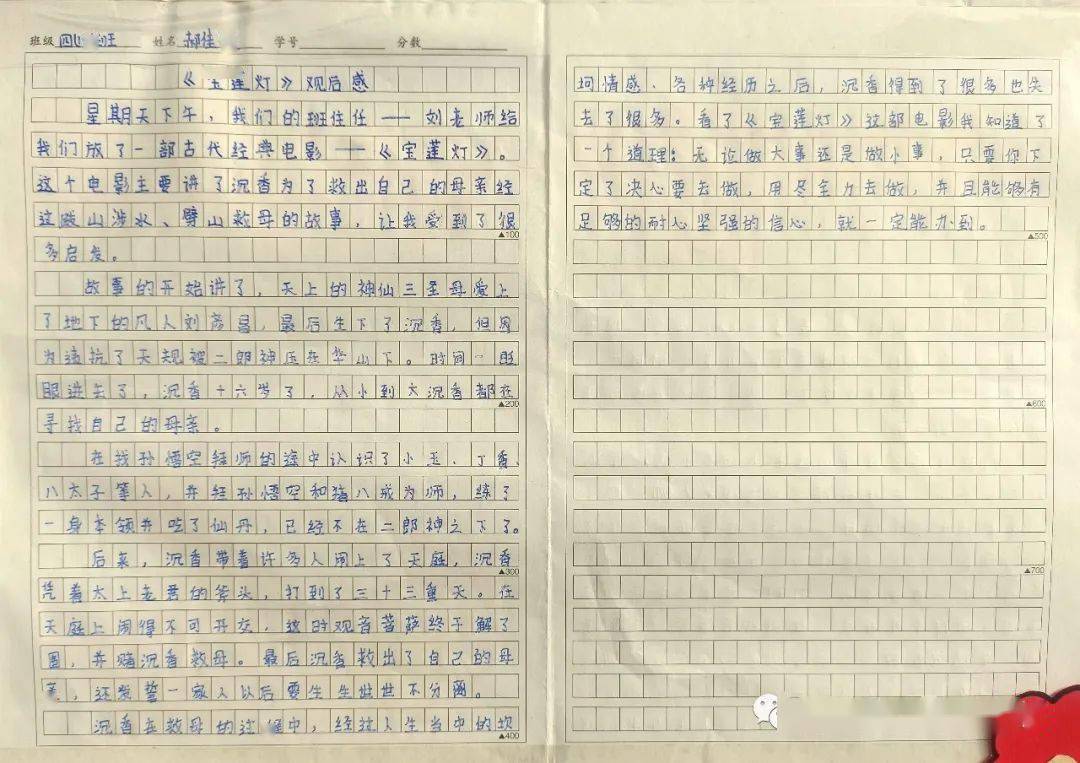 班级 四 班 姓名 郝佳 学号 分数
《宝莲灯》观后感
星期天下午，我们的班住任——刘老师给
我们放了一部古代经典电影——《宝莲灯》。
这个电影主要讲了沉香为了救出自己的母亲经
过跋山涉水、劈山救母的故事，让我受到了很
▲100
多启发。
故事的开始讲了，天上的神仙三圣母爱上
了地下的凡人刘彦昌，最后生下了沉香，但因
为违抗了天规被二郎神压在华山下。时间一眨
眼进去了，沉香十六岁了，从小到大沉香都在
▲200
寻找自己的母亲。
在找孙悟空拜师的途中认识了小玉、丁香、
八太子等人，并拜孙悟空和猪八戒为师，练了
一身本领并吃了仙丹，已经不在二郎神之下了。
后来，沉香带着许多人闹上了天庭，沉香
▲300
凭着太上老君的斧头，打到了三十三重天。在
天庭上闹得不可开交，这时观音菩萨终于解了
围，并赌沉香救母。最后沉香救出了自己的母
亲，还发誓一家人以后要生生世世不分离。
沉香在救母的过程中，经过人生当中的坎
▲400
坷情感、各种经历之后，沉香得到了很多也失
去了很多。看了《宝莲灯》这部电影我知道了
一个道理：无论做大事还是做小事，只要你下
定了决心要去做，用尽全力去做，并且能够有
足够的耐心坚强的信心，就一定能办到。
▲500
▲600
▲700